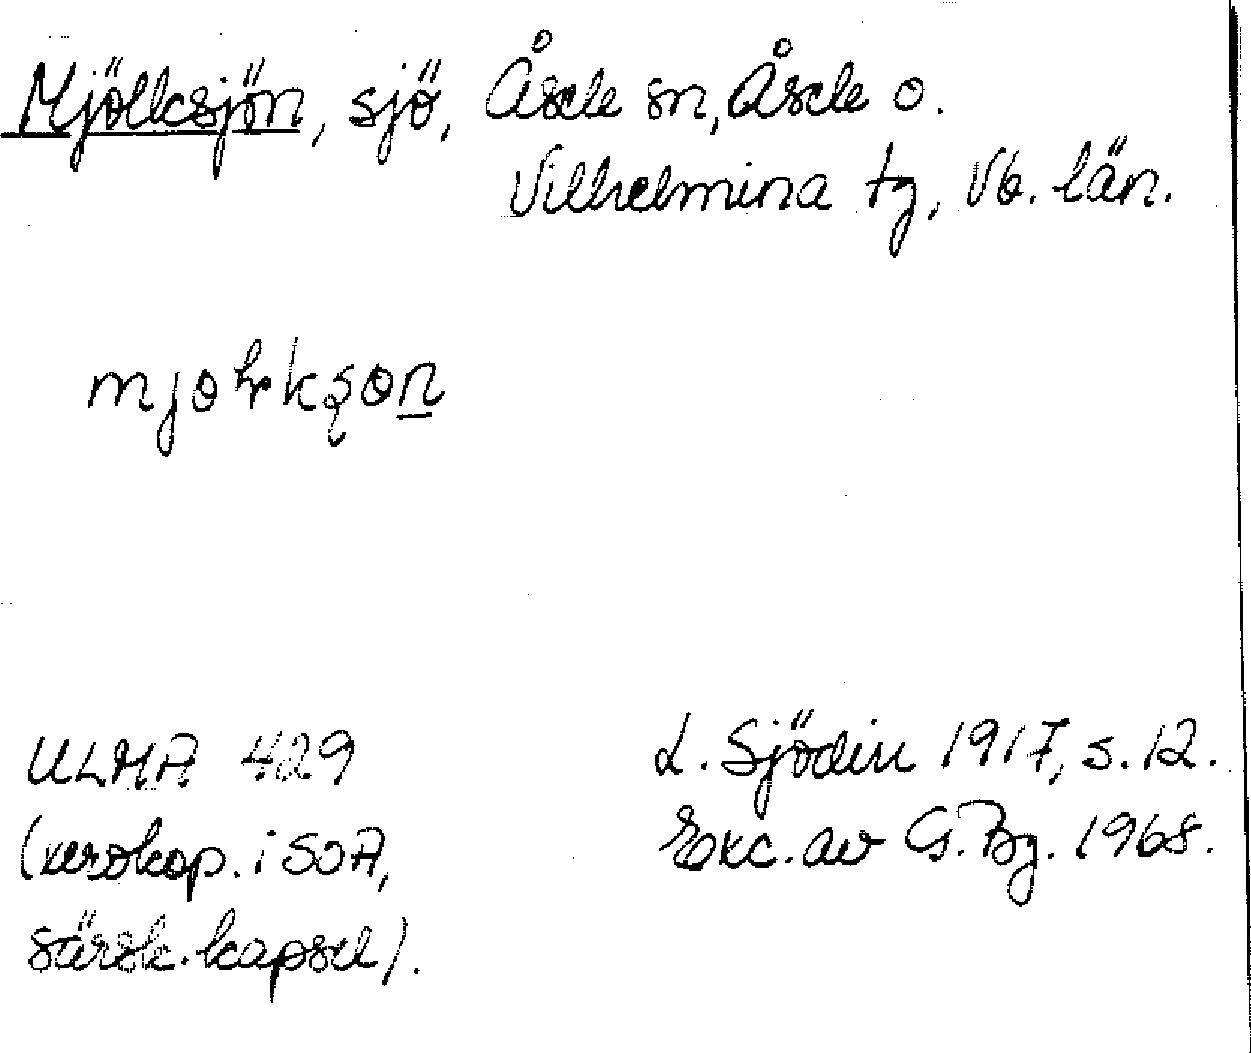 Mjölksjön, sjö, Åsele sn, Åsele o.
Vilhelmina tg, Vb. län.
ULMA 429
(xerokop. i SOA,
särsk. kapsel).
L. Sjödin 1917, s. 12.
Exc. av G. Bg. 1968.